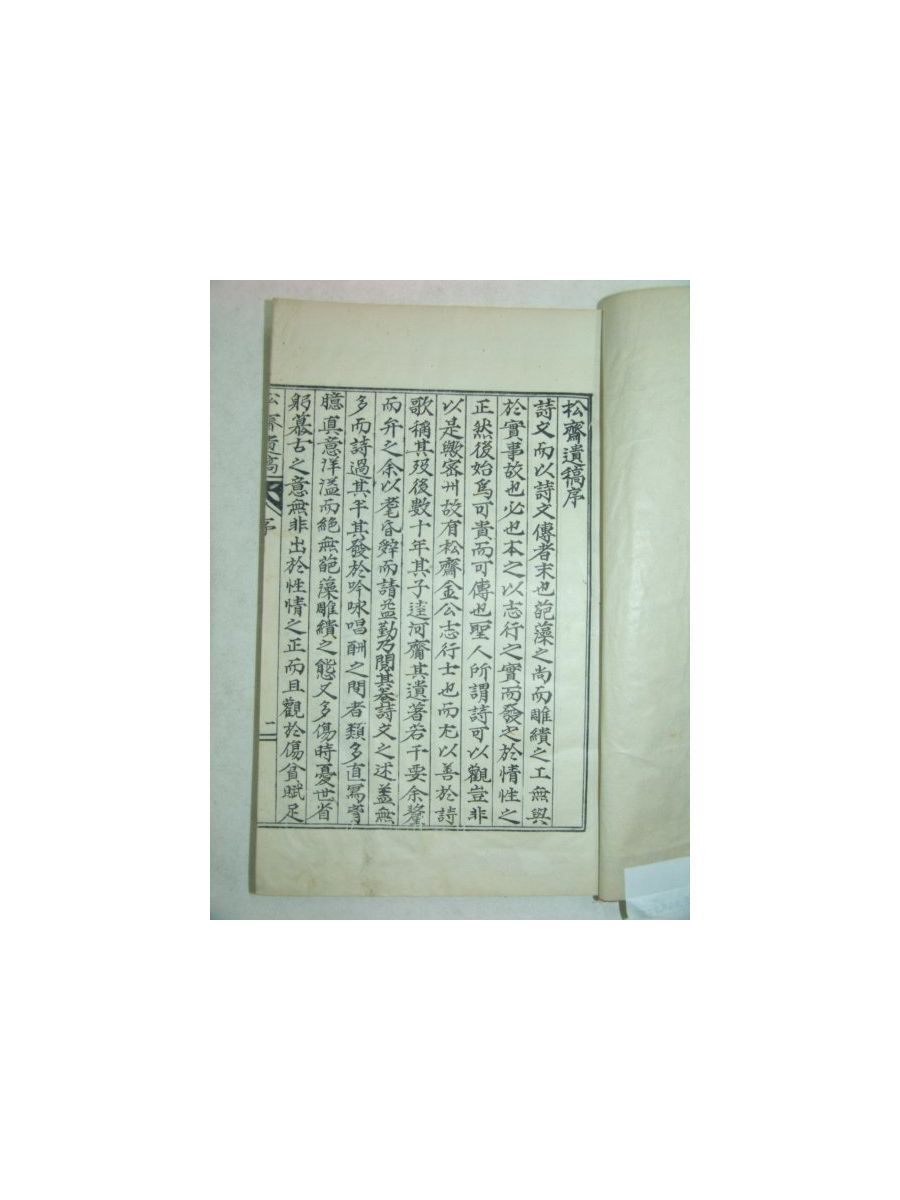 松齋遺稿序
詩文而以詩文傳者末也葩藻之尚而雕繢之工無與
於實事故也必也本之以志行之實而發之於情性之
正然後始爲可貴而可傳也聖人所謂詩可以觀豈非
以是歟密州故有松齋金公志行士也而尤以善於詩
歌稱其歿後數十年其子達河齎其遺著若干要余釐
而弁之余以耄昏辭而請益勤乃閱其卷詩文之述盖無
多而詩過其半其發於吟咏唱酬之間者類多直寫胷
臆眞意洋溢而絶無葩藻雕繢之態又多傷時憂世省
躬慕古之意無非出於性情之正而且觀於傷貧賦足
松齋遺稿 序 一